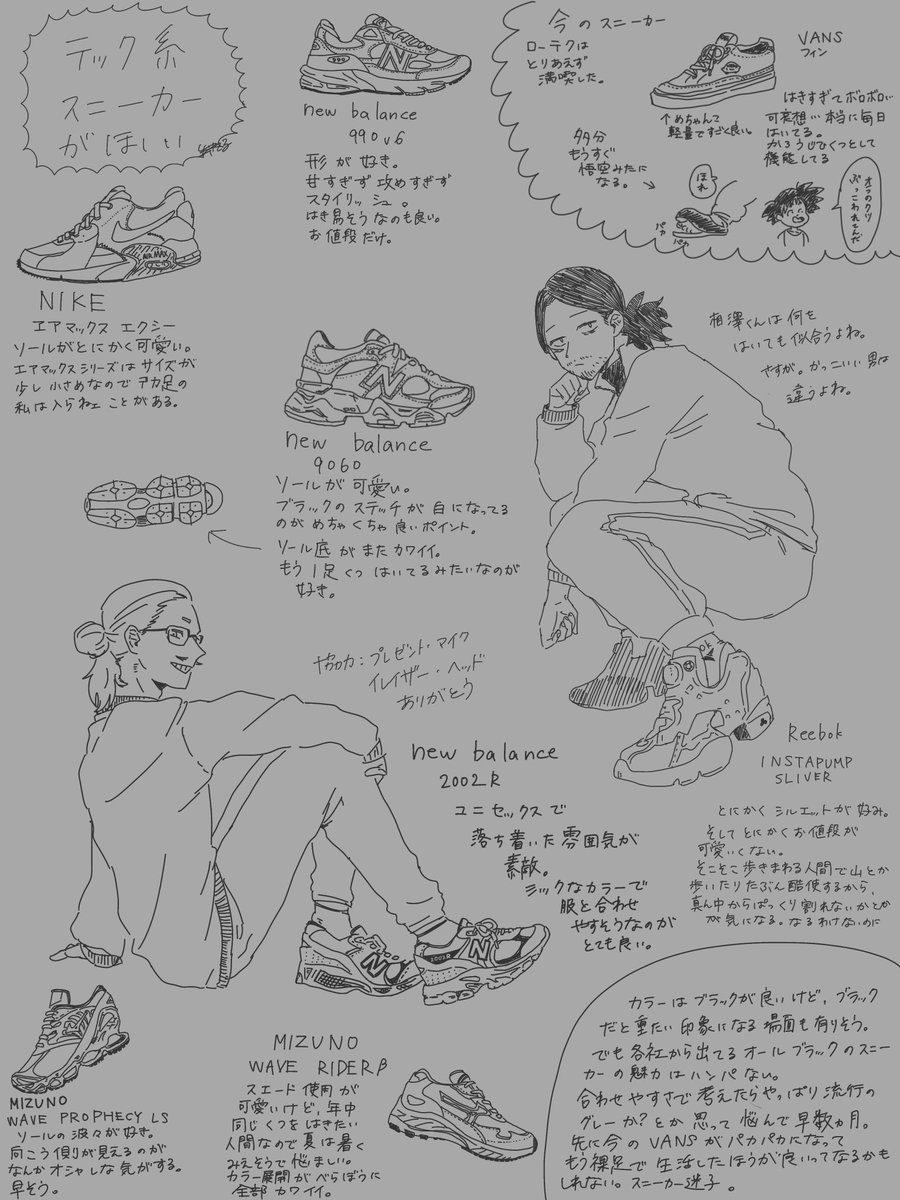 テック系
スニーカー
がほしい
new balance
990v6
形が好き。
甘すぎず攻めすぎず
スタイリッシュ。
はき易そうなのも良い。
お値段だけ。
今のスニーカー
ローテクは
とりあえず
満喫した。
VANS
フィン
めちゃんて
軽量ですごく良い。
はきすぎてボロボロい
可哀想い本当に毎日
はいてる。
かろうじてくつとして
機能してる
多分
もうすぐ
悟空みたに
なる。
ほれ
パカ
パカ
オラのクツ
ぶっこわれてんだ
AIR MAX
NIKE
エアマックス エクシー
ソールがとにかく可愛い。
エアマックスシリーズはサイズが
少し小さめなのでデカ足の
私は入らねェことがある。
new balance
9060
ソールが可愛い。
ブラックのステッチが白になってる
のがめちゃくちゃ良いポイント。
ソール底がまたカワイイ。
もう1足くつはいてるみたいなのが
好き。
相澤くんは何を
はいても似合うよね。
さすが。かっこいい男は
違うよね。
協力:プレゼント・マイク
イレイザー・ヘッド
ありがとう
new balance
2002R
ユニセックスで
落ち着いた雰囲気が
素敵。
シックなカラーで
服と合わせ
やすそうなのが
とても良い。
2002R
Reebok
INSTAPUMP
SLIVER
とにかくシルエットが好み。
そしてとにかくお値段が
可愛いくない。
そこそこ歩きまわる人間で山とか
歩いたりたぶん酷使するから、
真ん中からぱっくり割れないかとか
が気になる。なるわけないのに
MIZUNO
WAVE PROPHECY LS
ソールの波々が好き。
向こう側が見えるのが
なんかオシャレな気がする。
早そう。
MIZUNO
WAVE RIDERβ
スエード使用が
可愛いけど、年中
同じくつをはきたい
人間なので夏は暑く
みえそうで悩ましい。
カラー展開がべらぼうに
全部カワイイ。
カラーはブラックが良いけど、ブラック
だと重たい印象になる場面も有りそう。
でも各社から出てるオールブラックのスニー
カーの魅力はハンパない。
合わせやすさで考えたらやっぱり流行の
グレーか?とか思って悩んで早数ヵ月。
先に今のVANSがパカパカになって
もう裸足で生活したほうが良いってなるかも
しれない。スニーカー迷子。